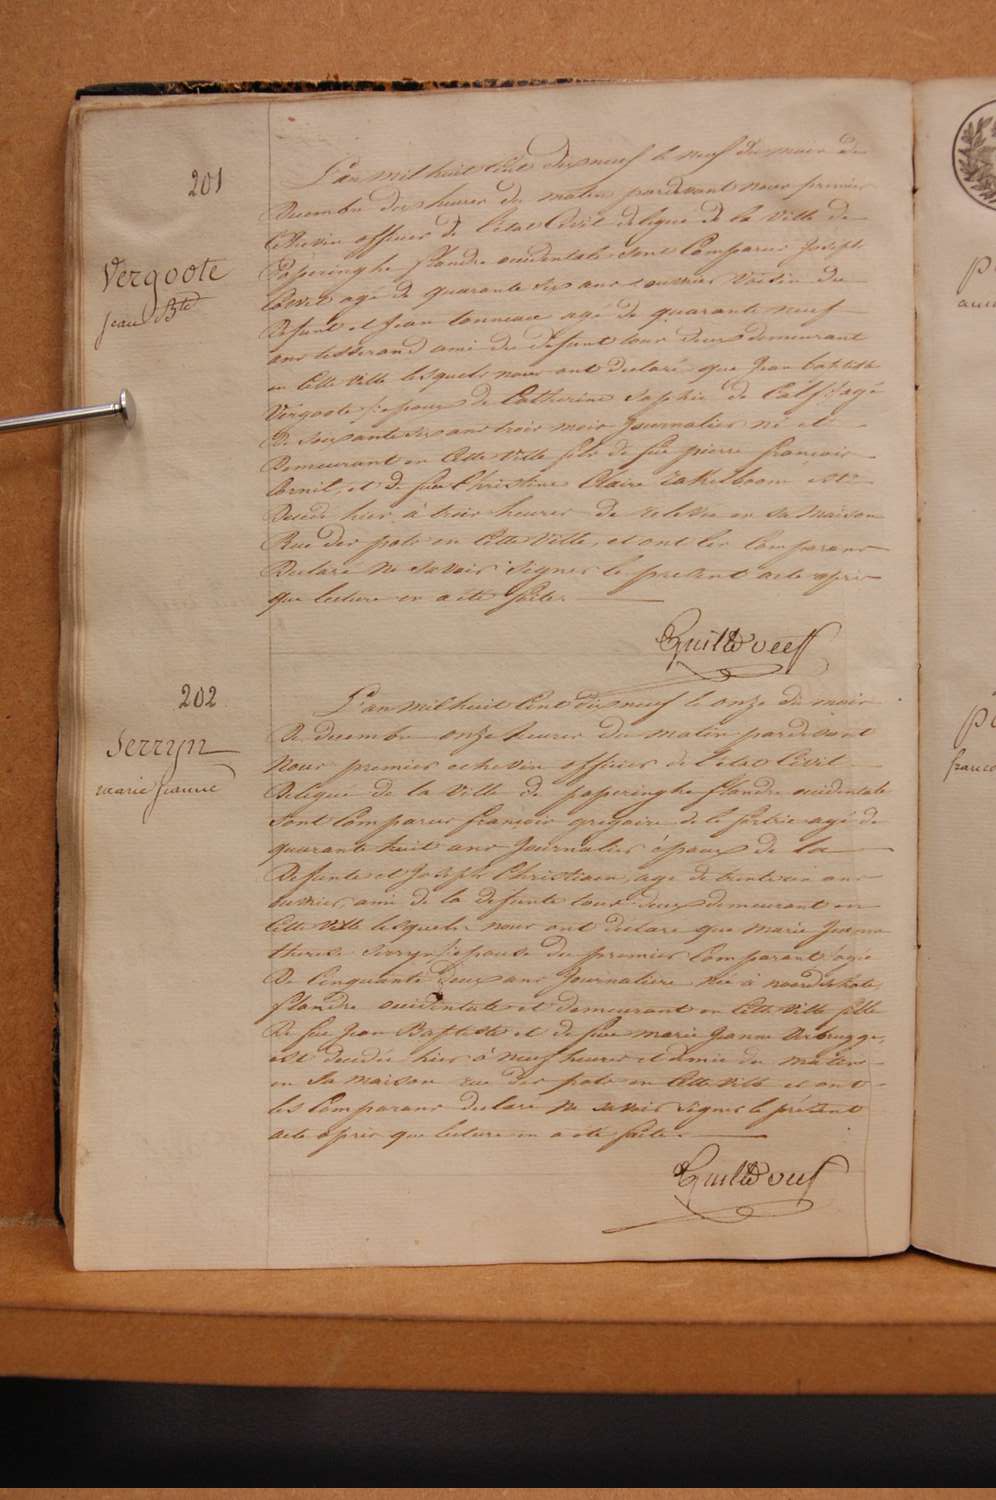 201
Vergoote
jean Bte
L'an mil huit Cent dix neuf le neuf du mois de
Decembre dix heures du matin pardevant nous premier
Echevin officier de l'etat Civil delegué de la Ville de
Poperinghe flandre occidentale sont Comparus Joseph
agé de quarante six ans ouvrier Voisin du
Defunt et Jean Conneau agé de quarante neuf
ans tisserand ami du défunt tous deux demeurant
en Cette Ville lesquels nous ont declaré que Jean baptiste
Vergoote /:epoux de Catherine Sophie de Calf:/ agé
De soixante six ans trois mois Journalier né et
Demeurant en Cette Ville fils de feu pierre françois
Cornil, et de feue Christine Claire est
Decedé hier à trois heures de relevée en sa maison
Rue des pots en Cette Ville, et ont les Comparans
Declaré Ne Savoir Signer le present acte après
que lecture en a été faite.
202
Serryn
marie jeanne
L'an Mil huit Cent dix neuf le onze du mois
De decembre onze heures du matin pardevant
Nous premier echevin officier de l'etat Civil
Delegué de la Ville de poperinghe flandre occidentale
Sont Comparus françois gregoire de agé de
quarante huit ans Journalier époux de la
Defunte et Joseph Christiaen, agé de trente six ans
ouvrier, ami de la defunte tous deux demeurant en
Cette Ville lesquels nous ont declaré que marie Jeanne
therese Serryn /:epouse du premier Comparant:/ agée
De Cinquante deux ans Journaliere née à noordschote
flandre occidentale et demeurant en Cette Ville fille
De feu Jean Baptiste et de feue marie Jeanne Verbrugge,
est decedée hier à Neuf heures et demie du matin
en Sa maison rue des pots en Cette Ville et ont
les Comparans declaré Ne savoir signer le présent
acte après que lecture en a été faite.